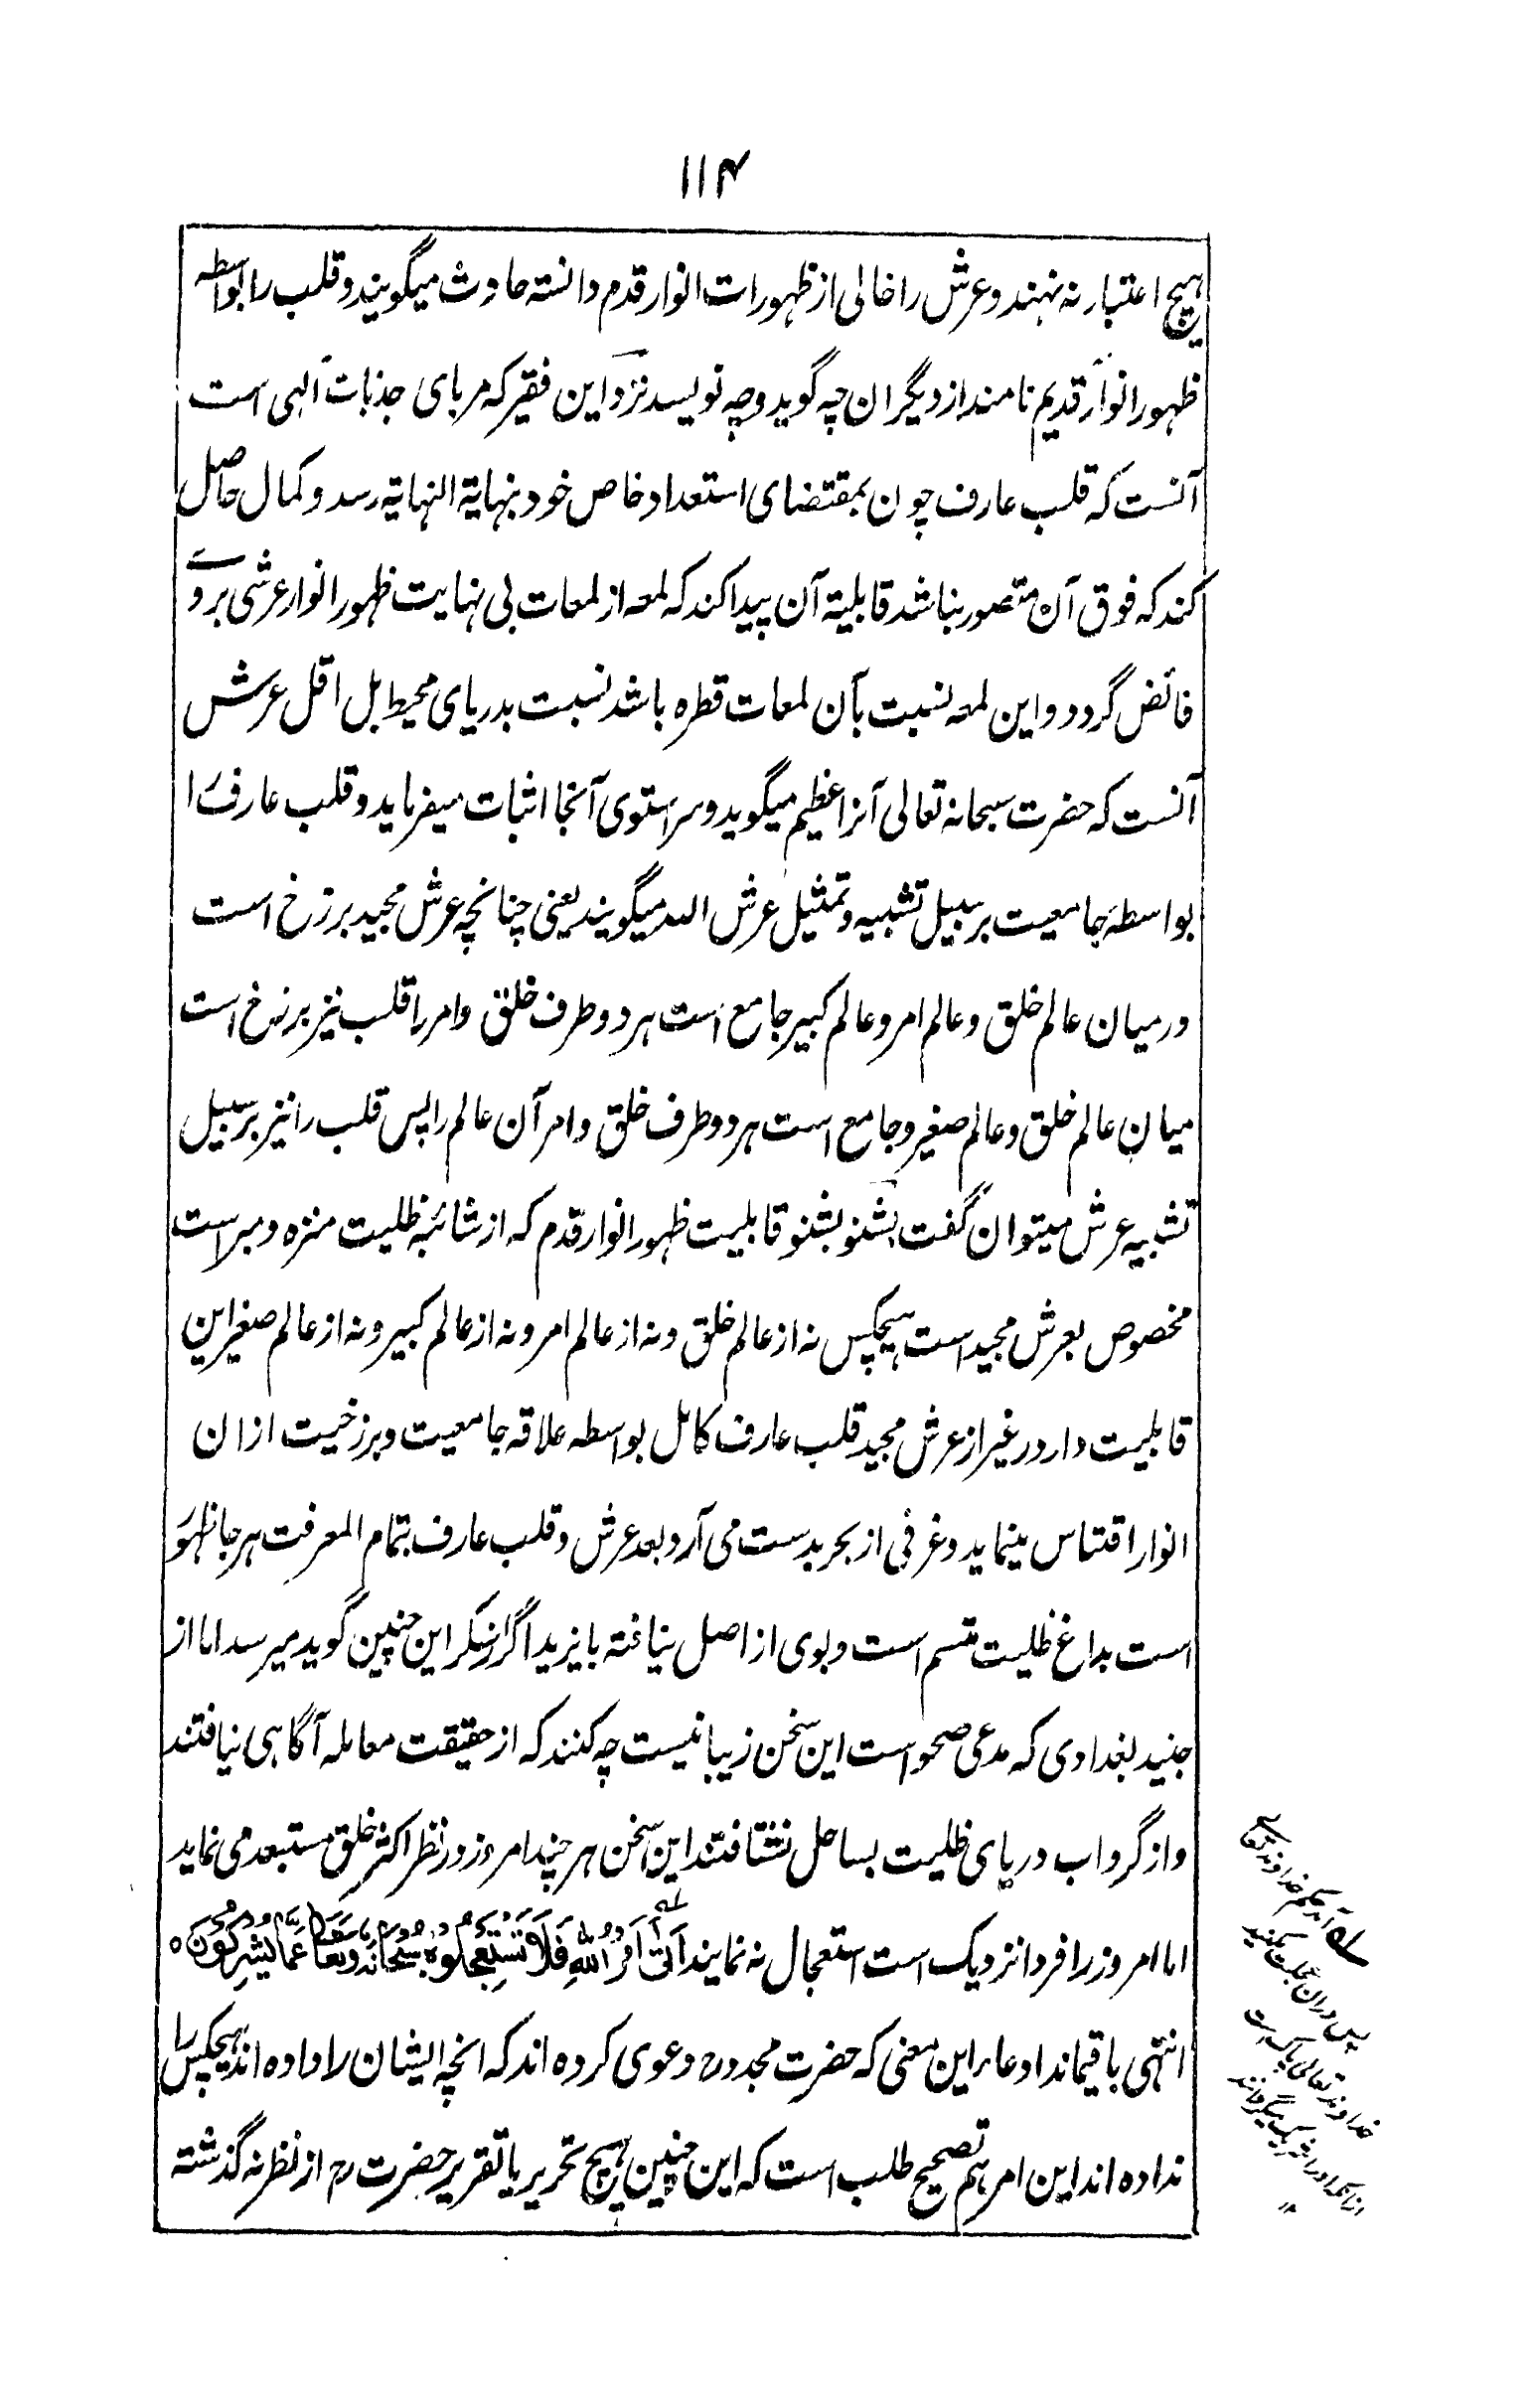 ۱۱۴
ہیچ اعتبار نہ نہند و عرش را خالی از ظہورات انوار قدم دانستہ حادث میگویند و قلب را بواسطہ
ظہور انوار قدیم نامند از دیگران چہ گوید و چہ نویسد نزد این فقیر کہ مربای جذبات الہی است
آنست کہ قلب عارف چون بمقتضای استعداد خاص خود بنہایة النہایة رسد و کمال حاصل
کند کہ فوق آن متصور نباشد قابلیة آن پیدا کند کہ لمعہ از لمعات بی نہایت ظہور انوار عرشی بروے
فائض گردد و این لمعہ نسبت بآن لمعات قطرہ باشد نسبت بدریای محیط بل اقل عرش
آنست کہ حضرت سبحانہ تعالی آنرا عظیم میگوید و سر استوی آنجا اثبات میفرماید و قلب عارف را
بواسطہ جامعیت بر سبیل تشبیہ و تمثیل عرش اللہ میگویند یعنی چنانچہ عرش مجید برزخ است
درمیان عالم خلق و عالم امر و عالم کبیر جامع است ہر دو طرف خلق و امر را قلب نیز برزخ است
میان عالم خلق و عالم صغیر و جامع است ہر دو طرف خلق و امر آن عالم را پس قلب را نیز بر سبیل
تشبیہ عرش میتوان گفت بشنو بشنو قابلیت ظہور انوار قدم کہ از شائبہ ظلیت منزہ و مبراست
مخصوص بعرش مجید است ہیچکس نہ از عالم خلق و نہ از عالم امر و نہ از عالم کبیر و نہ از عالم صغیر این
قابلیت دارد ر غیر از عرش مجید قلب عارف کامل بواسطہ علاقہ جامعیت و برزخیت ازان
انوار اقتباس مینماید و غرفی از بحر بدست می آرد و بعد عرش و قلب عارف بتمام المعرفت ہر جا ظہور
است بداغ ظلیت متسم است و بوی از اصل نیافتہ بایزید اگر از سکر این چنین گوید میرسد اما از
جنید بغدادی کہ مدعی صحو است این سخن زیبا نیست چہ کنند کہ از حقیقت معاملہ آگاہی نیافتند
و از گرداب دریای ظلیت بساحل نشتافتند این سخن ہر چند امروز در نظر اکثر خلق مستبعد می نماید
اما امروز را فردا نزدیک است استعجال نہ نمایند اَتٰی اَمْرُ اللّٰہِ فَلَا تَسْتَعْجِلُوْہُ سُبْحَانَہٗ وَتَعَالٰی عَمَّا یُشْرِکُوْنَ ٥
انتہی باقیماند ادعا براین معنی کہ حضرت مجدد رح دعوی کردہ اند کہ انچہ ایشان را دادہ اند ہیچکس را
ندادہ اند این امر ہم تصحیح طلب است کہ این چنین ہیچ تحریر یا تقریر حضرت رح از نظر نہ گذشتہ
لہ آمد حکم خداوند تعالے
پس دران عجلت مکنید
خداوند تعالی پاک است
ازانکہ او را شریک میگردانند
۱۲